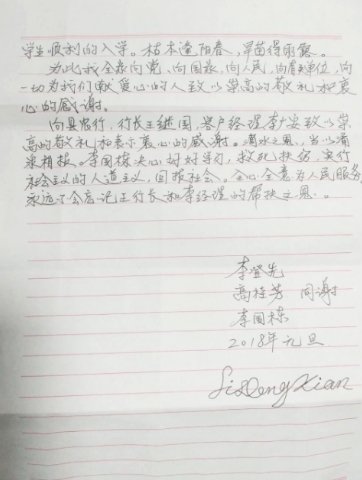 学生顺利的入学。枯木逢阳春，旱苗得雨露。
为此我全家向党、向国家，向人民，向有关单位，向
一切为我们献爱心的人致以崇高的敬礼和衷
心的感谢。
向县农行，行长王继国，客户经理李广安致以崇
高的敬礼和表示衷心的感谢。滴水之恩，当以涌
泉相报。李国栋决心好好学习，救死扶伤，实行
社会主义的人道主义，回报社会。全心全意为人民服务
永远不会忘记王行长和李经理的帮扶之恩。
李登先
高桂芳 同谢
李国栋
2018年元旦
Li Deng Xian